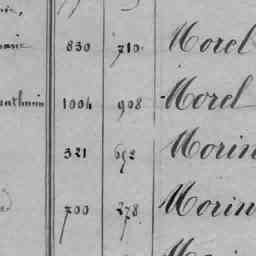 830 710 Morel
1004 908 Morel
321 692 Morin
700 278 Morin